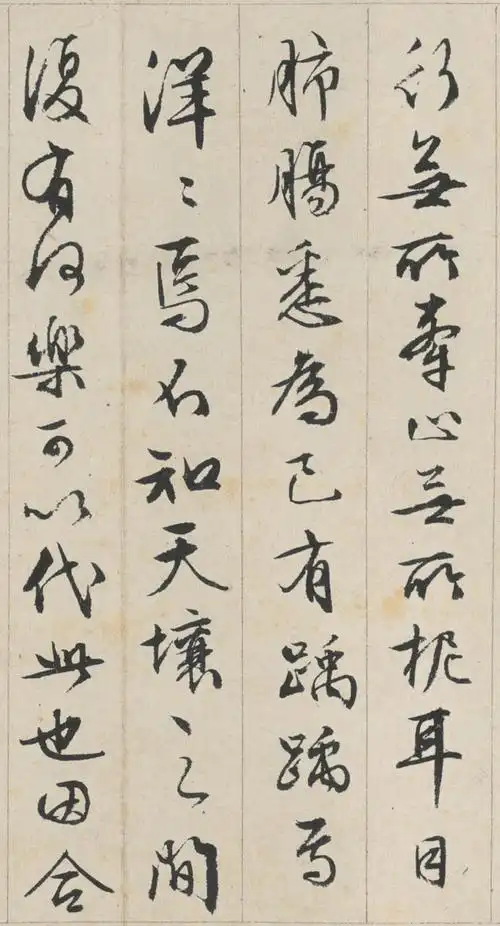 行無所牽止無所柅耳目
肺腸悉為己有踽踽焉
洋〻焉不知天壤之間
復有何樂可以代此也因合